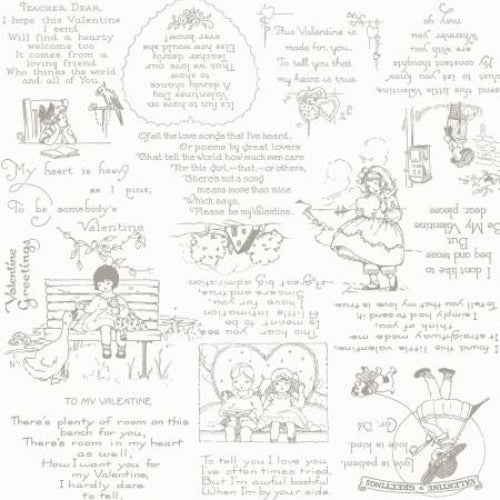 TEACHER DEAR,
I hope this Valentine
I send
Will find a hearty
welcome too
It comes from a
loving friend
Who thinks the world
and all of You.
It's fun to have on
Valentines Day
A dandy chance
to show
That we love our
Teacher dearly
Else how would she
ever know?
This Valentine is
made for you,
To tell you that
my heart is true.
send this little valentine,
Just to let you know
My constant thoughts
are with you
Wherever you
may go
Of all the love songs that I've heard,
Or poems by great lovers
That tell the world how much men care
For this girl,—that,—or others,
There's not a song
means more than mine
Which says,
Please be my Valentine.
My heart is heavy
as I pine,
To be somebody's
Valentine
I don't like to
beg and tease
But
Be My Valentine
dear, please
Valentine
Greetings
heart you see
is meant to be
intimation
I have for you,
Sincere and true,
A great big admiration
I found this funny valentine,
It straightway made me
think of you,
I simply had to send it to
tell you that my love is true.
TO MY VALENTINE
There's plenty of room on this
bench for you,
There's room in my heart
as well,
How I want you for
my Valentine,
I hardly dare
to tell.
To tell you I love you
I've often times tried,
But I'm awful bashful
When I'm by your side.
Love is patient,
Love is kind
VALENTINE GREETINGS